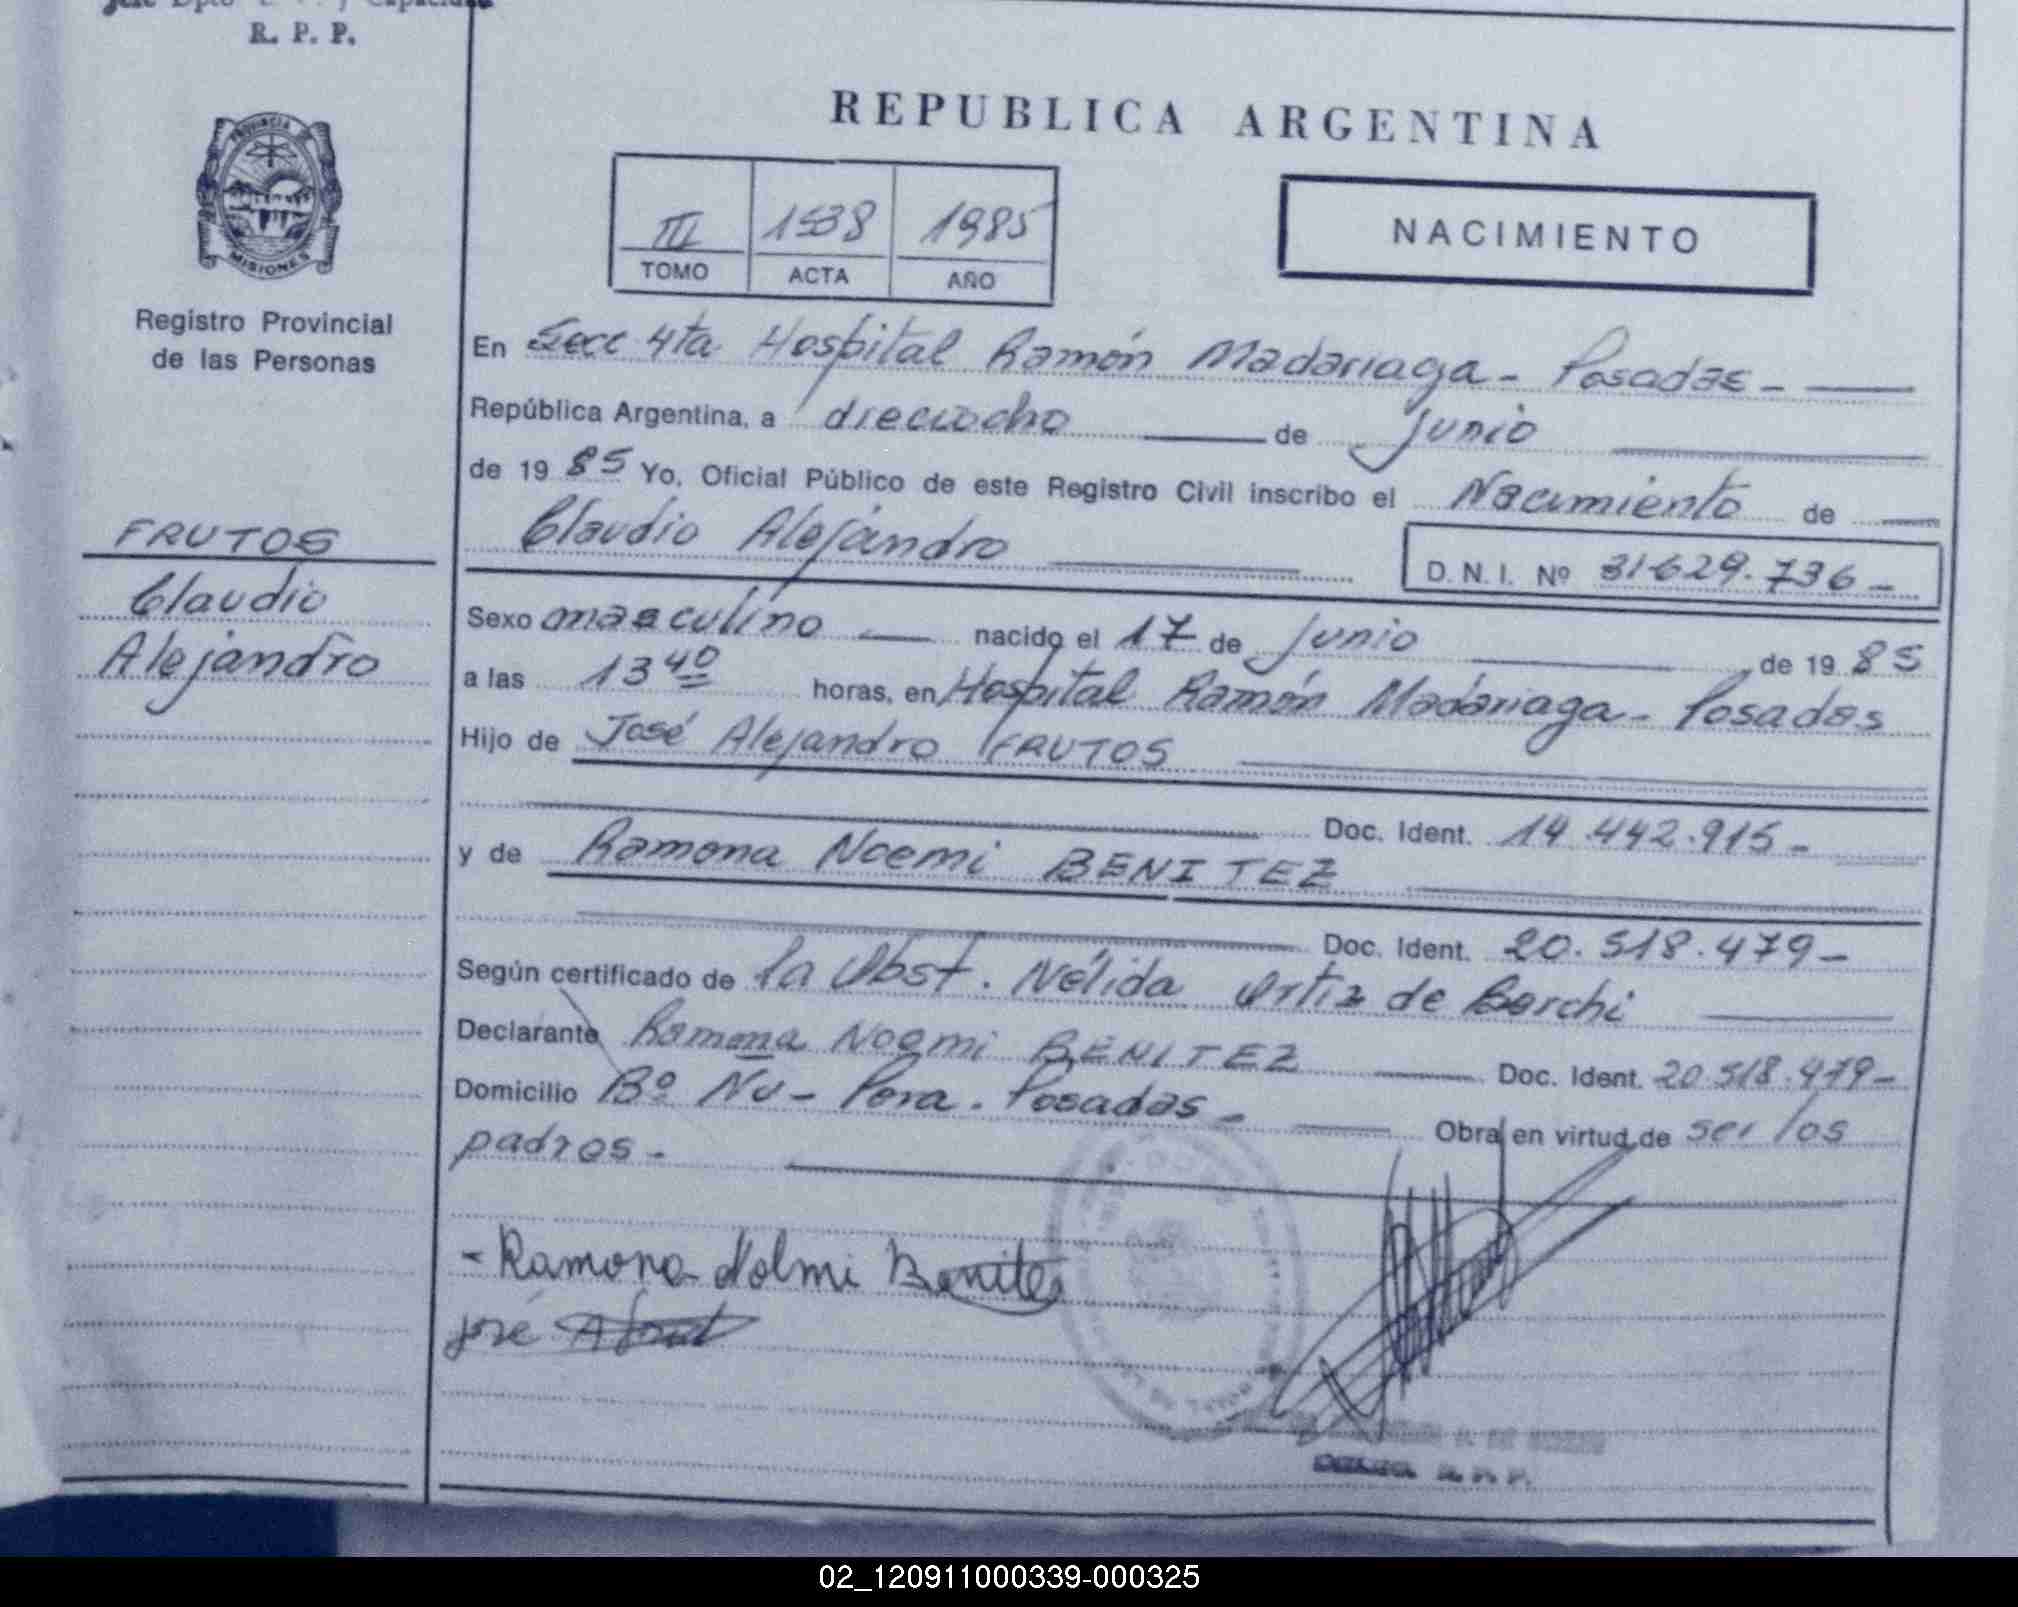 R. P. P.
PROVINCIA
MISIONES
Registro Provincial
de las Personas
FRUTOS
Claudio
Alejandro
REPUBLICA ARGENTINA
III 1538 1985
TOMO ACTA AÑO
NACIMIENTO
En Secc 4ta Hospital Ramón Madariaga - Posadas -
República Argentina, a dieciocho de junio
de 1985 Yo, Oficial Público de este Registro Civil inscribo el Nacimiento de
Claudio Alejandro D. N. I. Nº 31.629.736 -
Sexo masculino nacido el 17 de Junio de 1985
a las 13 40 horas, en Hospital Ramón Madariaga - Posadas
Hijo de José Alejandro FRUTOS
Doc. Ident. 14.442.915 -
y de Ramona Noemi BENITEZ
Doc. Ident. 20.518.479 -
Según certificado de la Obst. Nélida Ortiz de Borchi
Declarante Ramona Noemi BENITEZ Doc. Ident. 20.518.479 -
Domicilio Bº Ñu - Pora. Posadas - Obra en virtud de ser los
padres -
- Ramona Nolmi Benitez
José
R. P. P.
02_120911000339-000325